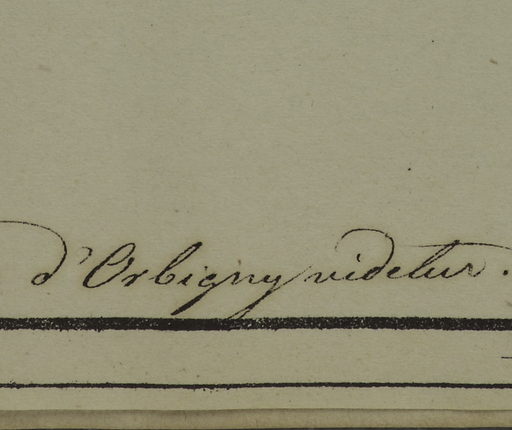 d'Orbigny videtur.